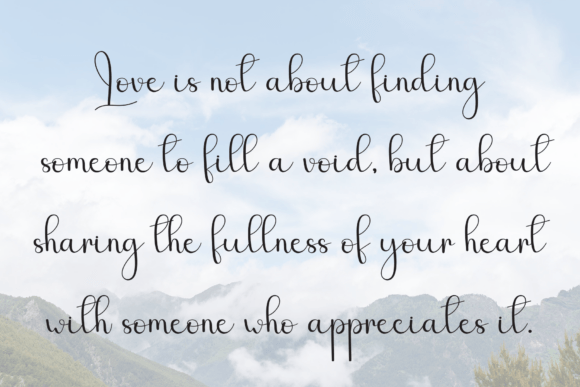 Love is not about finding
someone to fill a void, but about
sharing the fullness of your heart
with someone who appreciates it.